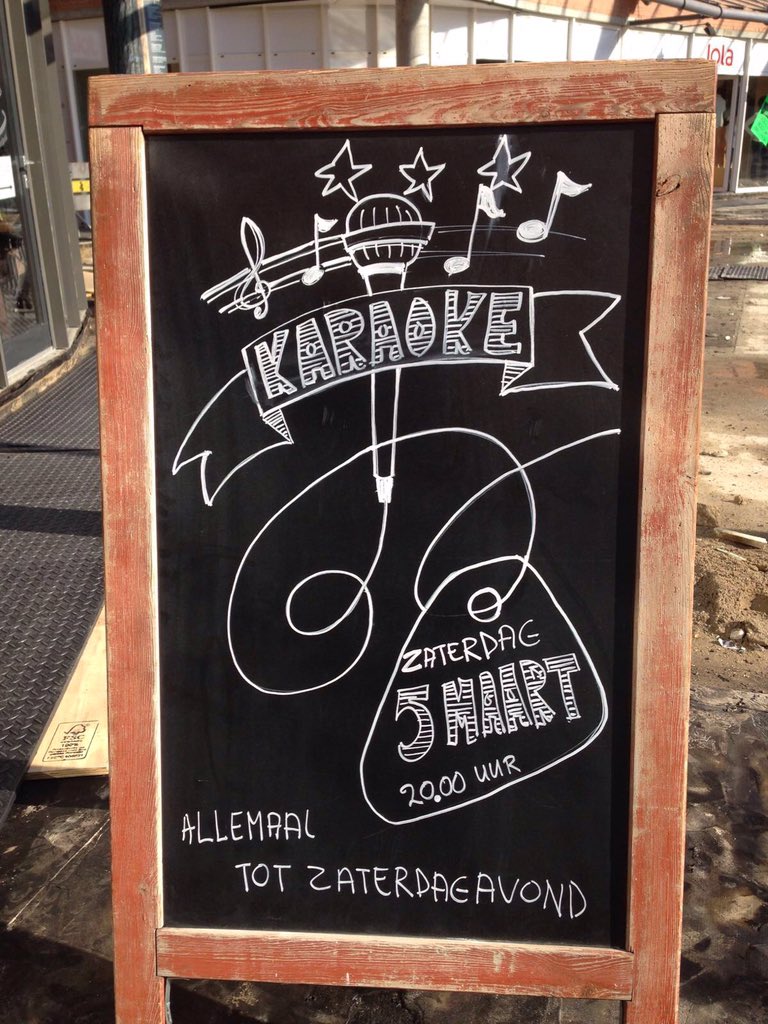 lola
KARAOKE
ZATERDAG
5 MAART
20.00 UUR
ALLEMAAL
TOT ZATERDAGAVOND
FSC
100%